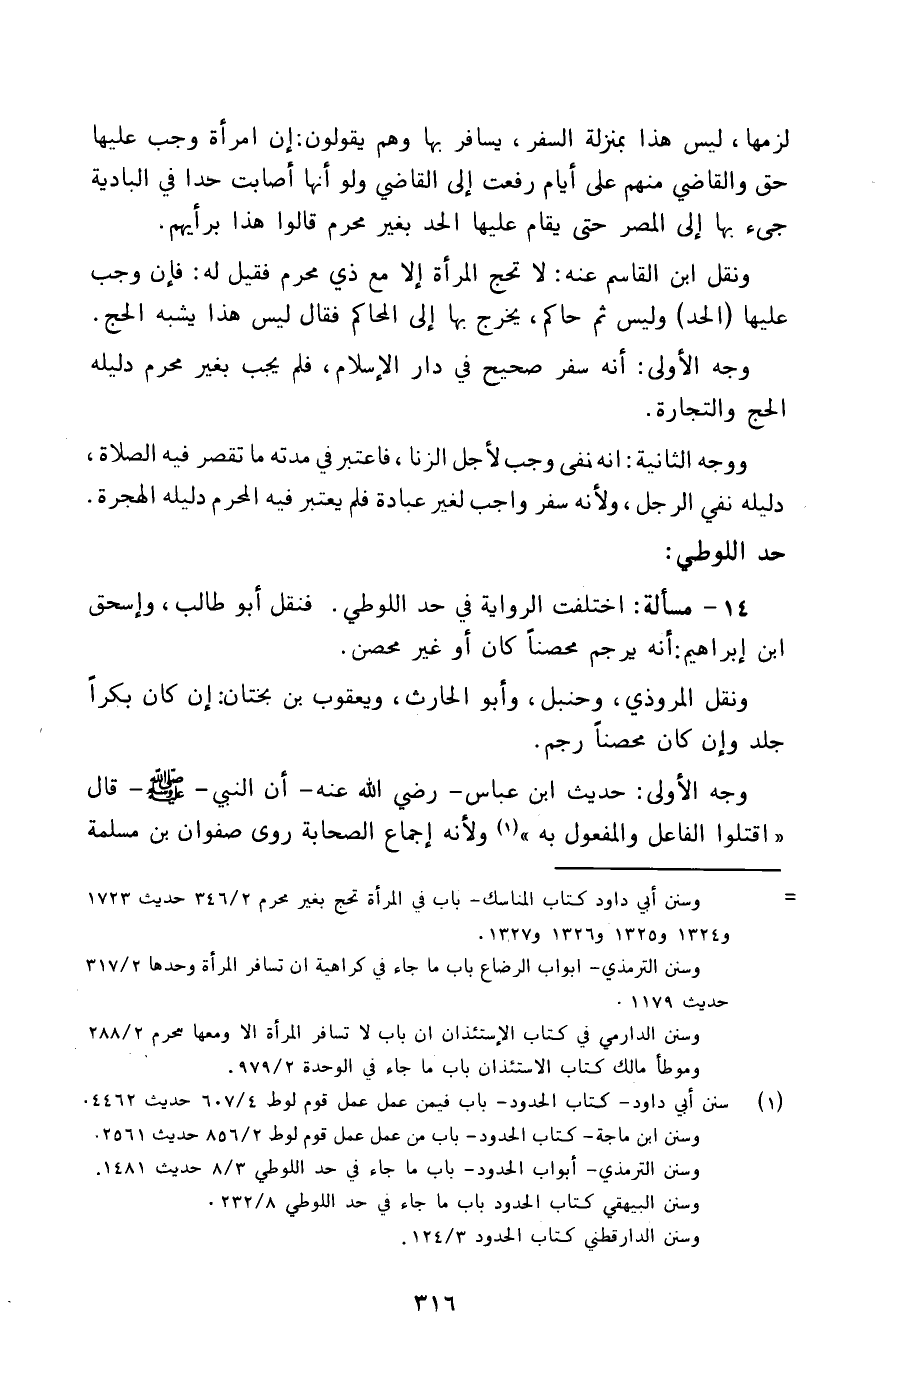 لزمها، ليس هذا بمنزلة السفر، يسافر بها وهم يقولون:إن امرأة وجب عليها
حق والقاضي منهم على أيام رفعت إلى القاضي ولو أنها أصابت حدا في البادية
جيء بها إلى المصر حتى يقام عليها الحد بغير محرم قالوا هذا برأيهم.
ونقل ابن القاسم عنه: لا تحج المرأة إلا مع ذي محرم فقيل له: فإن وجب
عليها (الحد) وليس ثم حاكم، يخرج بها إلى الحاكم فقال ليس هذا يشبه الحج.
وجه الأولى: أنه سفر صحيح في دار الإسلام، فلم يجب بغير محرم دليله
الحج والتجارة.
ووجه الثانية: انه نفى وجب لأجل الزنا، فاعتبر في مدته ما تقصر فيه الصلاة،
دليله نفي الرجل، ولأنه سفر واجب لغير عبادة فلم يعتبر فيه المحرم دليله الهجرة.
حد اللوطي:
١٤ - مسألة: اختلفت الرواية في حد اللوطي. فنقل أبو طالب، وإسحق
ابن إبراهيم:أنه يرجم محصناً كان أو غير محصن.
ونقل المروذي، وحنبل، وأبو الحارث، ويعقوب بن بختان: إن كان بكراً
جلد وإن كان محصناً رجم.
وجه الأولى: حديث ابن عباس- رضي الله عنه- أن النبي- ﷺ- قال
«اقتلوا الفاعل والمفعول به»(١) ولأنه إجماع الصحابة روى صفوان بن مسلمة
= وسنن أبي داود كتاب المناسك- باب في المرأة تحج بغير محرم ٣٤٦/٢ حديث ١٧٢٣
و١٣٢٤ و١٣٢٥ و١٣٢٦ و١٣٢٧.
وسنن الترمذي- ابواب الرضاع باب ما جاء في كراهية ان تسافر المرأة وحدها ٣١٧/٢
حديث ١١٧٩.
وسنن الدارمي في كتاب الإستئذان ان باب لا تسافر المرأة الا ومعها محرم ٢٨٨/٢
وموطأ مالك كتاب الاستئذان باب ما جاء في الوحدة ٩٧٩/٢.
(١) سنن أبي داود- كتاب الحدود- باب فيمن عمل عمل قوم لوط ٦٠٧/٤ حديث ٤٤٦٢.
وسنن ابن ماجة- كتاب الحدود- باب من عمل عمل قوم لوط ٨٥٦/٢ حديث ٢٥٦١.
وسنن الترمذي- أبواب الحدود- باب ما جاء في حد اللوطي ٨/٣ حديث ١٤٨١.
وسنن البيهقي كتاب الحدود باب ما جاء في حد اللوطي ٢٣٢/٨.
وسنن الدارقطني كتاب الحدود ١٢٤/٣.
٣١٦